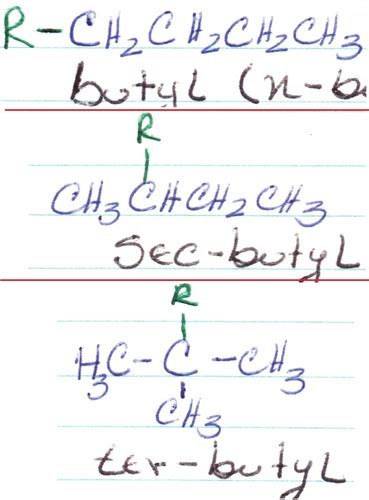 R-CH2CH2CH2CH3
butyl (n-b
R
CH3CHCH2CH3
sec-butyl
R
H3C-C-CH3
CH3
ter-butyl